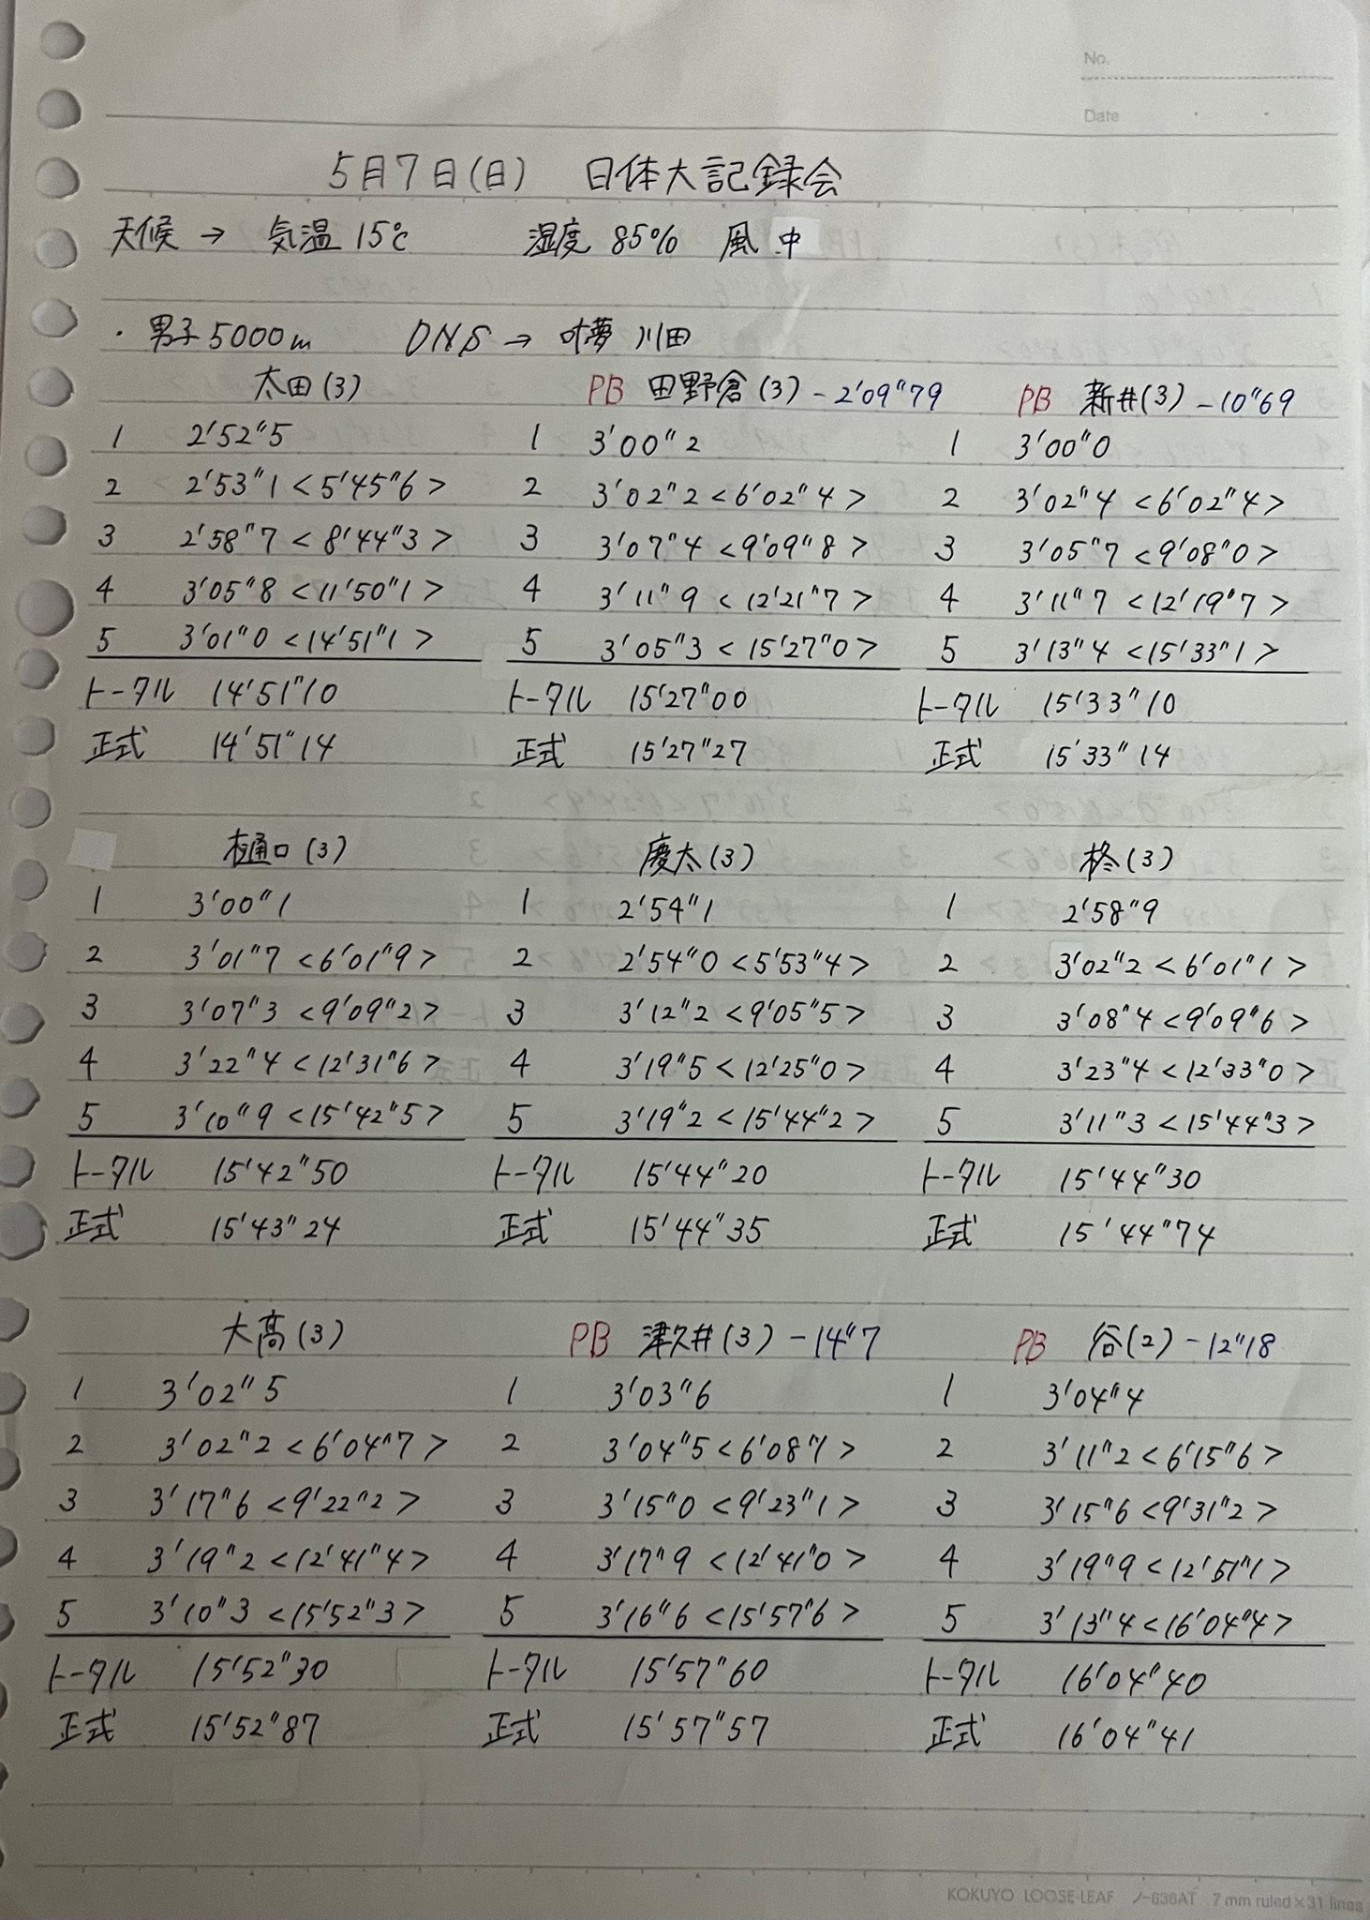 No.
Date
5月7日(日) 日体大記録会
天候 → 気温 15℃ 湿度 85% 風 中
・男子5000m DNS → 叶夢 川田
太田(3) PB 田野倉(3) -2'09"79 PB 新井(3) -10"69
1 2'52"5 1 3'00"2 1 3'00"0
2 2'53"1 <5'45"6> 2 3'02"2 <6'02"4> 2 3'02"4 <6'02"4>
3 2'58"7 <8'44"3> 3 3'07"4 <9'09"8> 3 3'05"7 <9'08"0>
4 3'05"8 <11'50"1> 4 3'11"9 <12'21"7> 4 3'11"7 <12'19"7>
5 3'01"0 <14'51"1> 5 3'05"3 <15'27"0> 5 3'13"4 <15'33"1>
トータル 14'51"10 トータル 15'27"00 トータル 15'33"10
正式 14'51"14 正式 15'27"27 正式 15'33"14
樋口(3) 慶太(3) 柊(3)
1 3'00"1 1 2'54"1 1 2'58"9
2 3'01"7 <6'01"9> 2 2'54"0 <5'53"4> 2 3'02"2 <6'01"1>
3 3'07"3 <9'09"2> 3 3'12"2 <9'05"5> 3 3'08"4 <9'09"6>
4 3'22"4 <12'31"6> 4 3'19"5 <12'25"0> 4 3'23"4 <12'33"0>
5 3'10"9 <15'42"5> 5 3'19"2 <15'44"2> 5 3'11"3 <15'44"3>
トータル 15'42"50 トータル 15'44"20 トータル 15'44"30
正式 15'43"24 正式 15'44"35 正式 15'44"74
大髙(3) PB 津久井(3) -14"7 PB 谷(2) -12"18
1 3'02"5 1 3'03"6 1 3'04"4
2 3'02"2 <6'04"7> 2 3'04"5 <6'08"1> 2 3'11"2 <6'15"6>
3 3'17"6 <9'22"2> 3 3'15"0 <9'23"1> 3 3'15"6 <9'31"2>
4 3'19"2 <12'41"4> 4 3'17"9 <12'41"0> 4 3'19"9 <12'51"1>
5 3'10"3 <15'52"3> 5 3'16"6 <15'57"6> 5 3'13"4 <16'04"4>
トータル 15'52"30 トータル 15'57"60 トータル 16'04"40
正式 15'52"87 正式 15'57"57 正式 16'04"41
KOKUYO LOOSE-LEAF ノ-836AT 7 mm ruled×31 lines